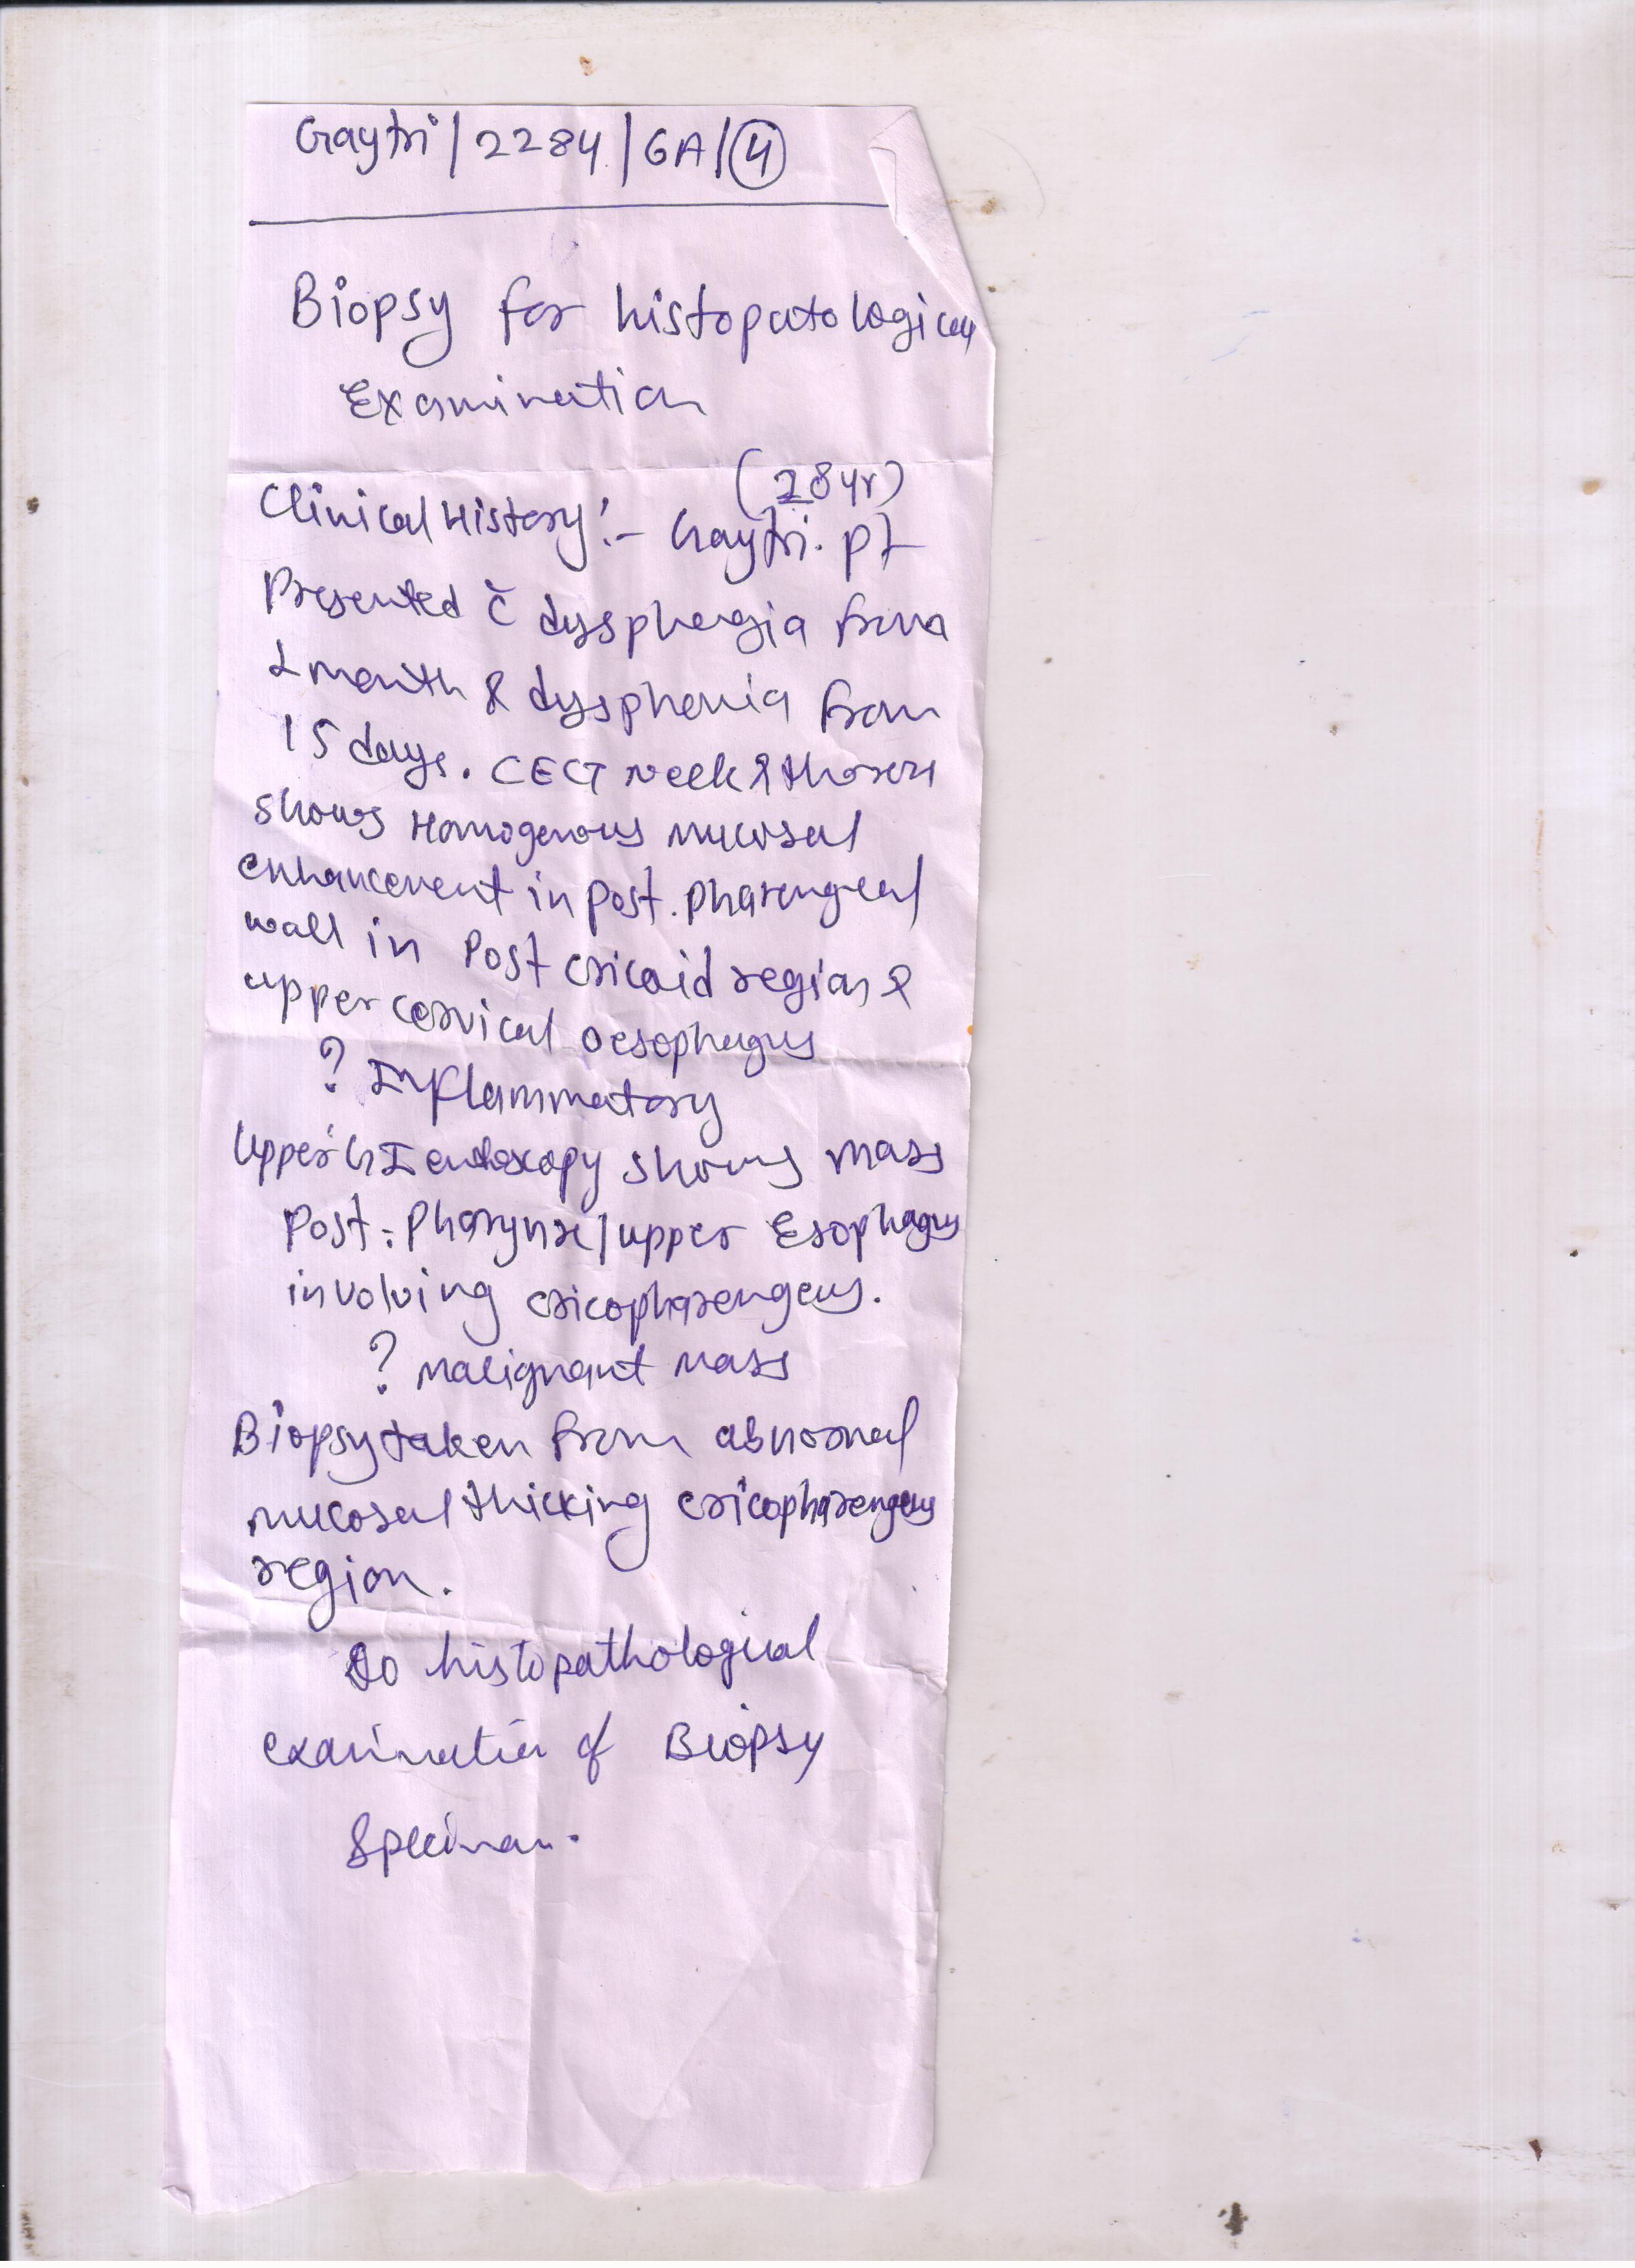 Gaytri/2284/GA/4
Biopsy for histopatological
Examination
(28yr)
Clinical History:- Gaytri. pt
Presented c̄ dysphagia from
1 month & dysphonia from
15 days. CECT neck & thorax
shows Homogenous mucosal
enhancement in post. pharengeal
wall in Post cricoid region &
upper cervical oesophagus
? Inflammatory
Upper GI endoscopy shows mass
Post: Pharynx/upper Esophagus
involving cricopharengeus.
? malignant mass
Biopsy taken from abnormal
mucosal thicking cricopharengeus
region.
Do histopathological
examination of Biopsy
Speciman.